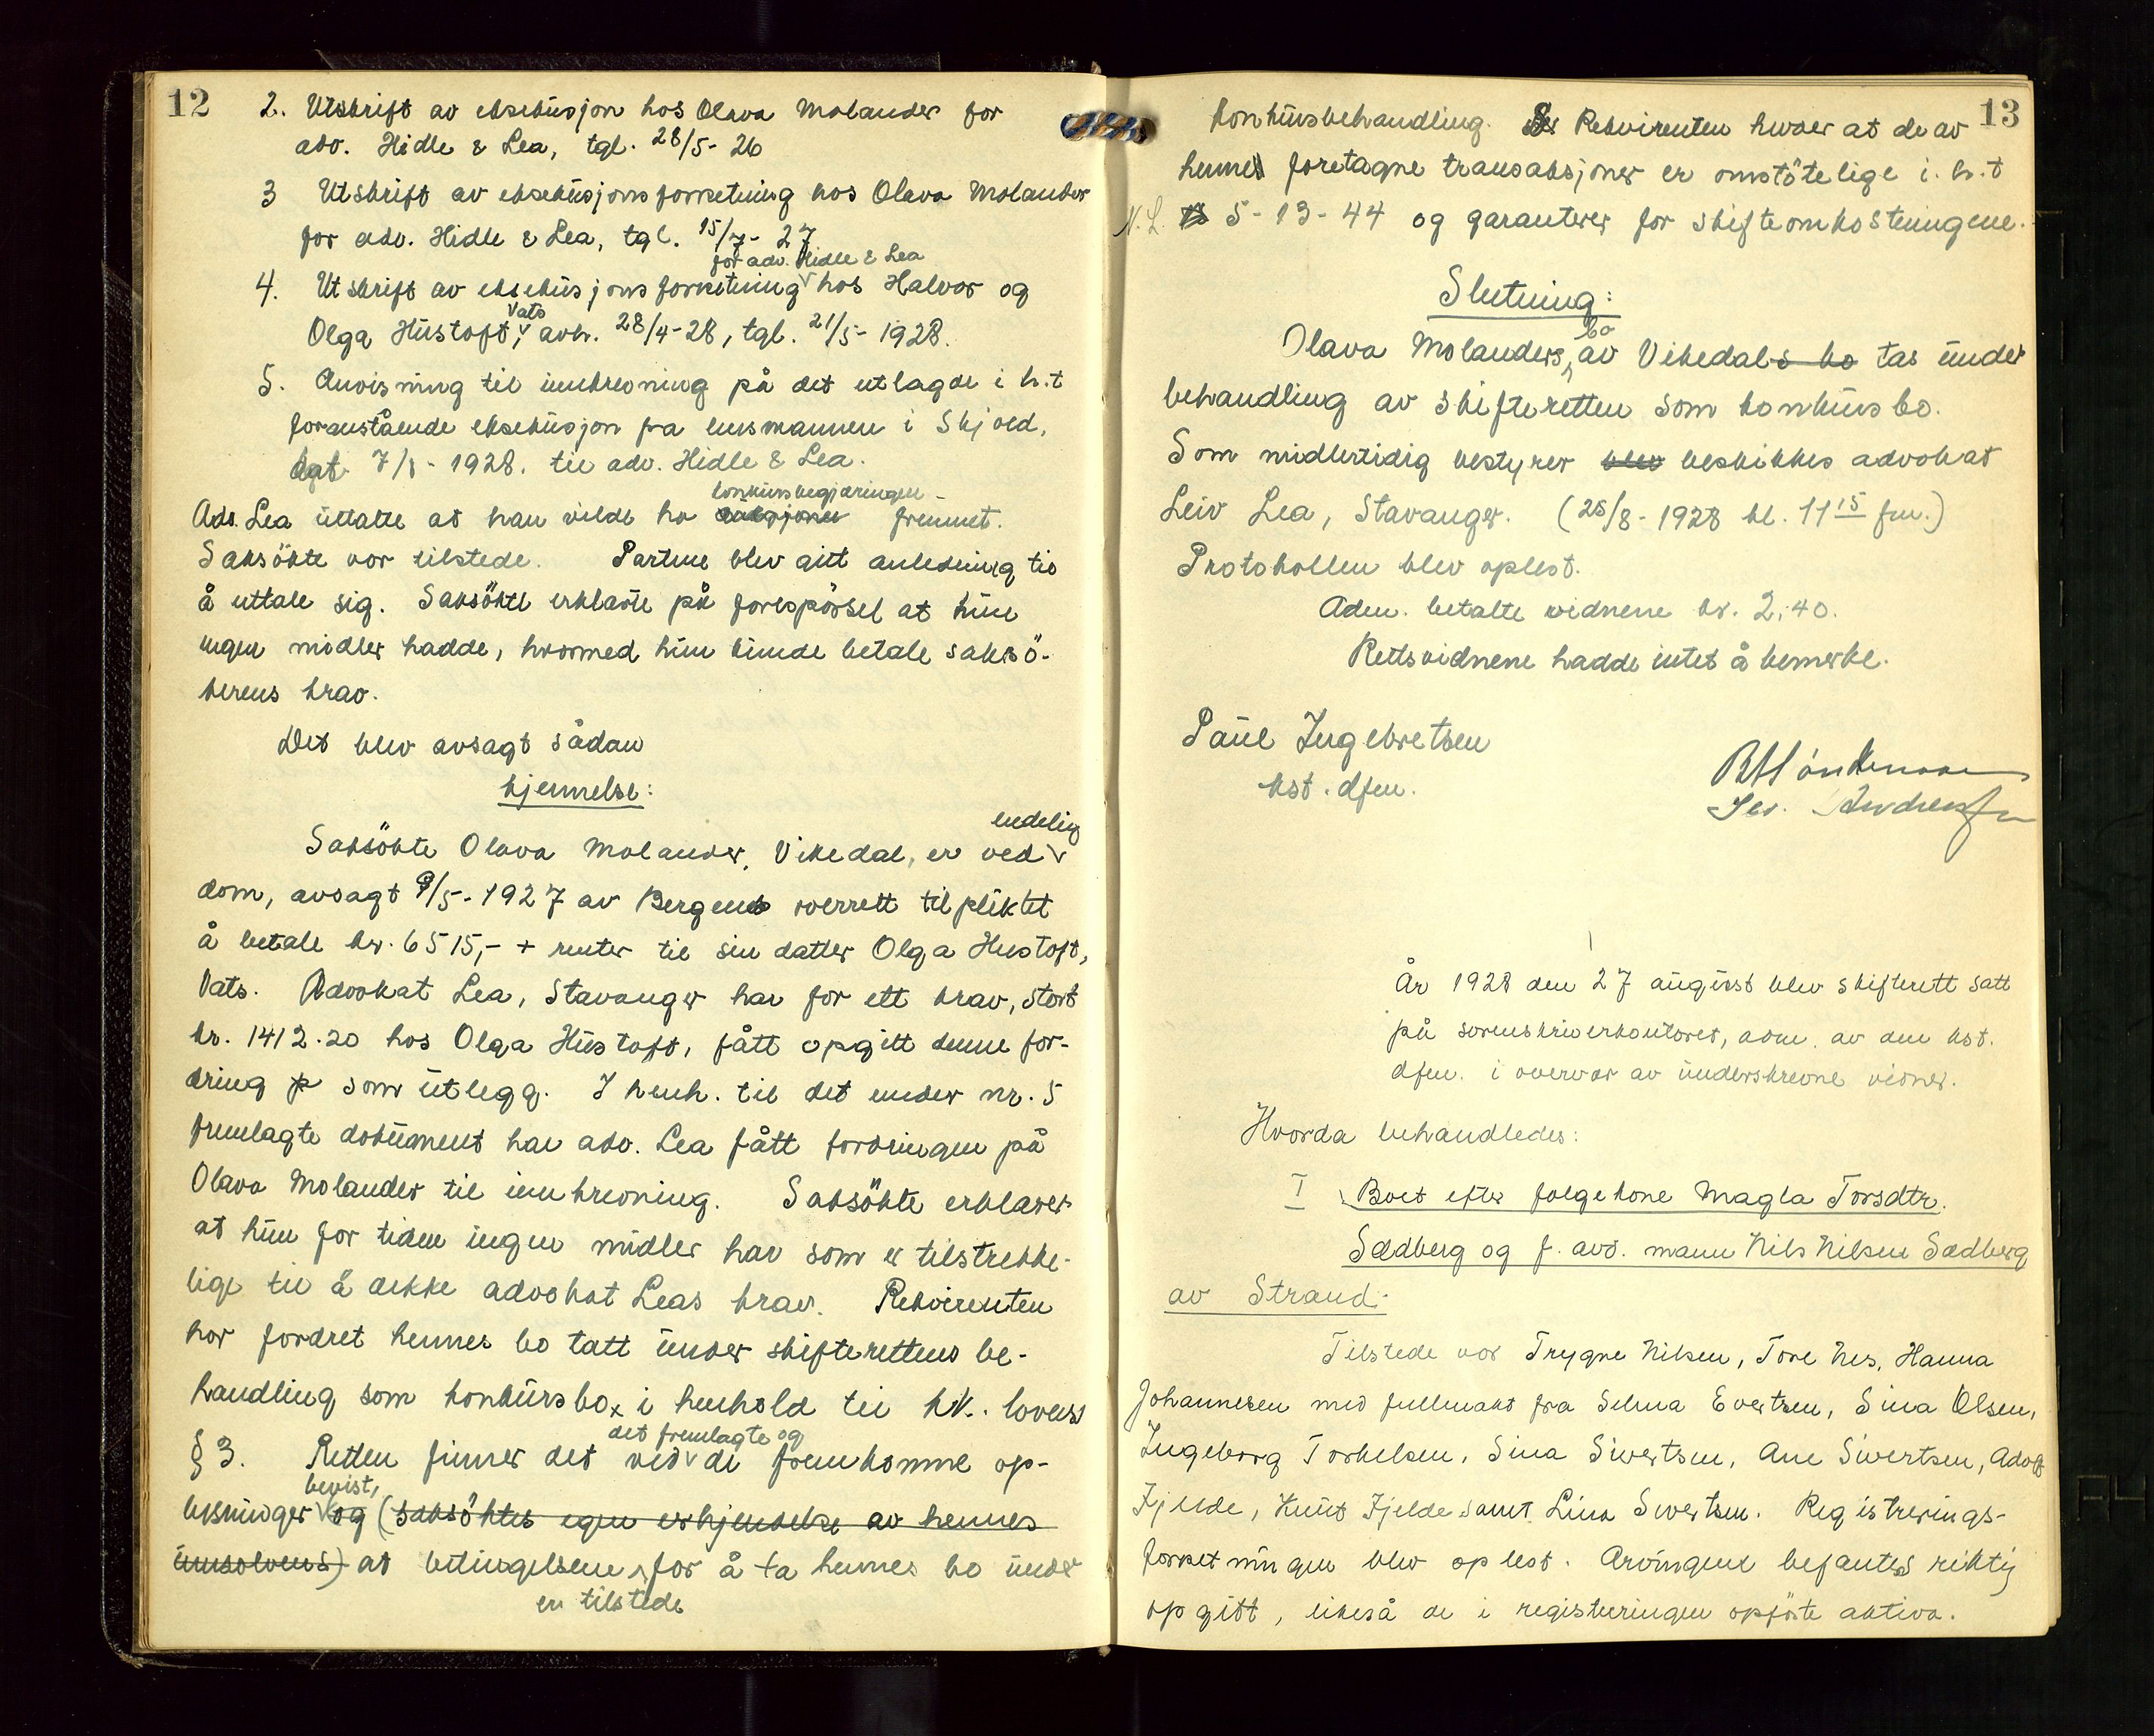 12
2. Utskrift av eksekusjon hos Olava Molander for
adv. Hidle & Lea, tgl. 28/5-26
3 Utskrift av eksekusjonsforretning hos Olava Molander
for adv. Hidle & Lea, tgl. 15/7-27
for adv. Hidle & Lea
4. Utskrift av eksekusjonsforretning hos Halvor og
Vats
Olga Hustoft, avh. 28/4-28, tgl. 21/5-1928.
5. Anvisning til innkrevning på det utlagde i h.t
foranstående eksekusjon fra lensmannen i Skjold,
dat. 7/8-1928. til adv. Hidle & Lea.
konkursbegjæringen
Adv. Lea uttalte at han vilde ha fremmet.
Saksökte var tilstede. Partene blev gitt anledning til
å uttale sig. Saksökte erklærte på forespörsel at hun
ingen midler hadde, hvormed hun kunde betale saksö-
kerens krav.
Det blev avsagt sådan
kjennelse:
endelig
Saksökte Olava Molander, Vikedal, er ved
dom, avsagt 9/5-1927 av Bergens overrett tilpliktet
å betale kr. 6515,- + renter til sin datter Olga Hustoft,
Vats. Advokat Lea, Stavanger har for ett krav, stort
kr. 1412.20 hos Olga Hustoft, fått opgitt denne for-
dring som utlegg. I henh. til det under nr. 5
fremlagte dokument har adv. Lea fått fordringen på
Olava Molander til innkrevning. Saksökte erklærer
at hun for tiden ingen midler har som er tilstrekke-
lige til å dekke advokat Leas krav. Rekvirenten
har fordret hennes bo tatt under skifterettens be-
handling som konkursbo, i henhold til kk. lovens
det fremlagte og
§ 3. Retten finner det ved de fremkomne op-
bevist,
lysninger og (saksöktes egen erkjendelse av hennes
innsolvens) at betingelsene for å ta hennes bo under
er tilstede
13
konkursbehandling. Rekvirenten hevder at de av
hennes foretagne transaksjoner er omstötelige i. h. t
N.L. 5-13-44 og garanterer for skifteomkostningene.
Slutning:
bo
Olava Molanders, av Vikedals bo tas under
behandling av skifteretten som konkursbo.
Som midlertidig bestyrer blev beskikkes advokat
Leiv Lea, Stavanger. (25/8-1928 kl. 11 15 fm.)
Protokollen blev oplest.
Adm. betalte vidnene kr. 2,40.
Rettsvidnene hadde intet å bemerke.
Paul Ingebretsen
kst. dfm.
År 1928 den 27 august blev skifterett satt
på sorenskriverkontoret, adm. av den kst.
dfm. i overvær av underskrevne vidner.
Hvorda behandledes:
I Boet efter folgekone Magla Torsdtr.
Sædberg og f. avd. mann Nils Nilsen Sædberg
av Strand.
Tilstede var Trygve Nilsen, Tore Nes, Hanna
Johannesen med fullmakt fra Selma Evertsen, Sina Olsen,
Ingeborg Torkelsen, Sina Sivertsen, Ane Sivertsen, Adolf
Fjelde, Knut Fjelde samt Lina Sivertsen. Registrerings-
forretningen blev oplest. Arvingene befantes riktig
opgitt, likeså de i registreringen opförte aktiva.